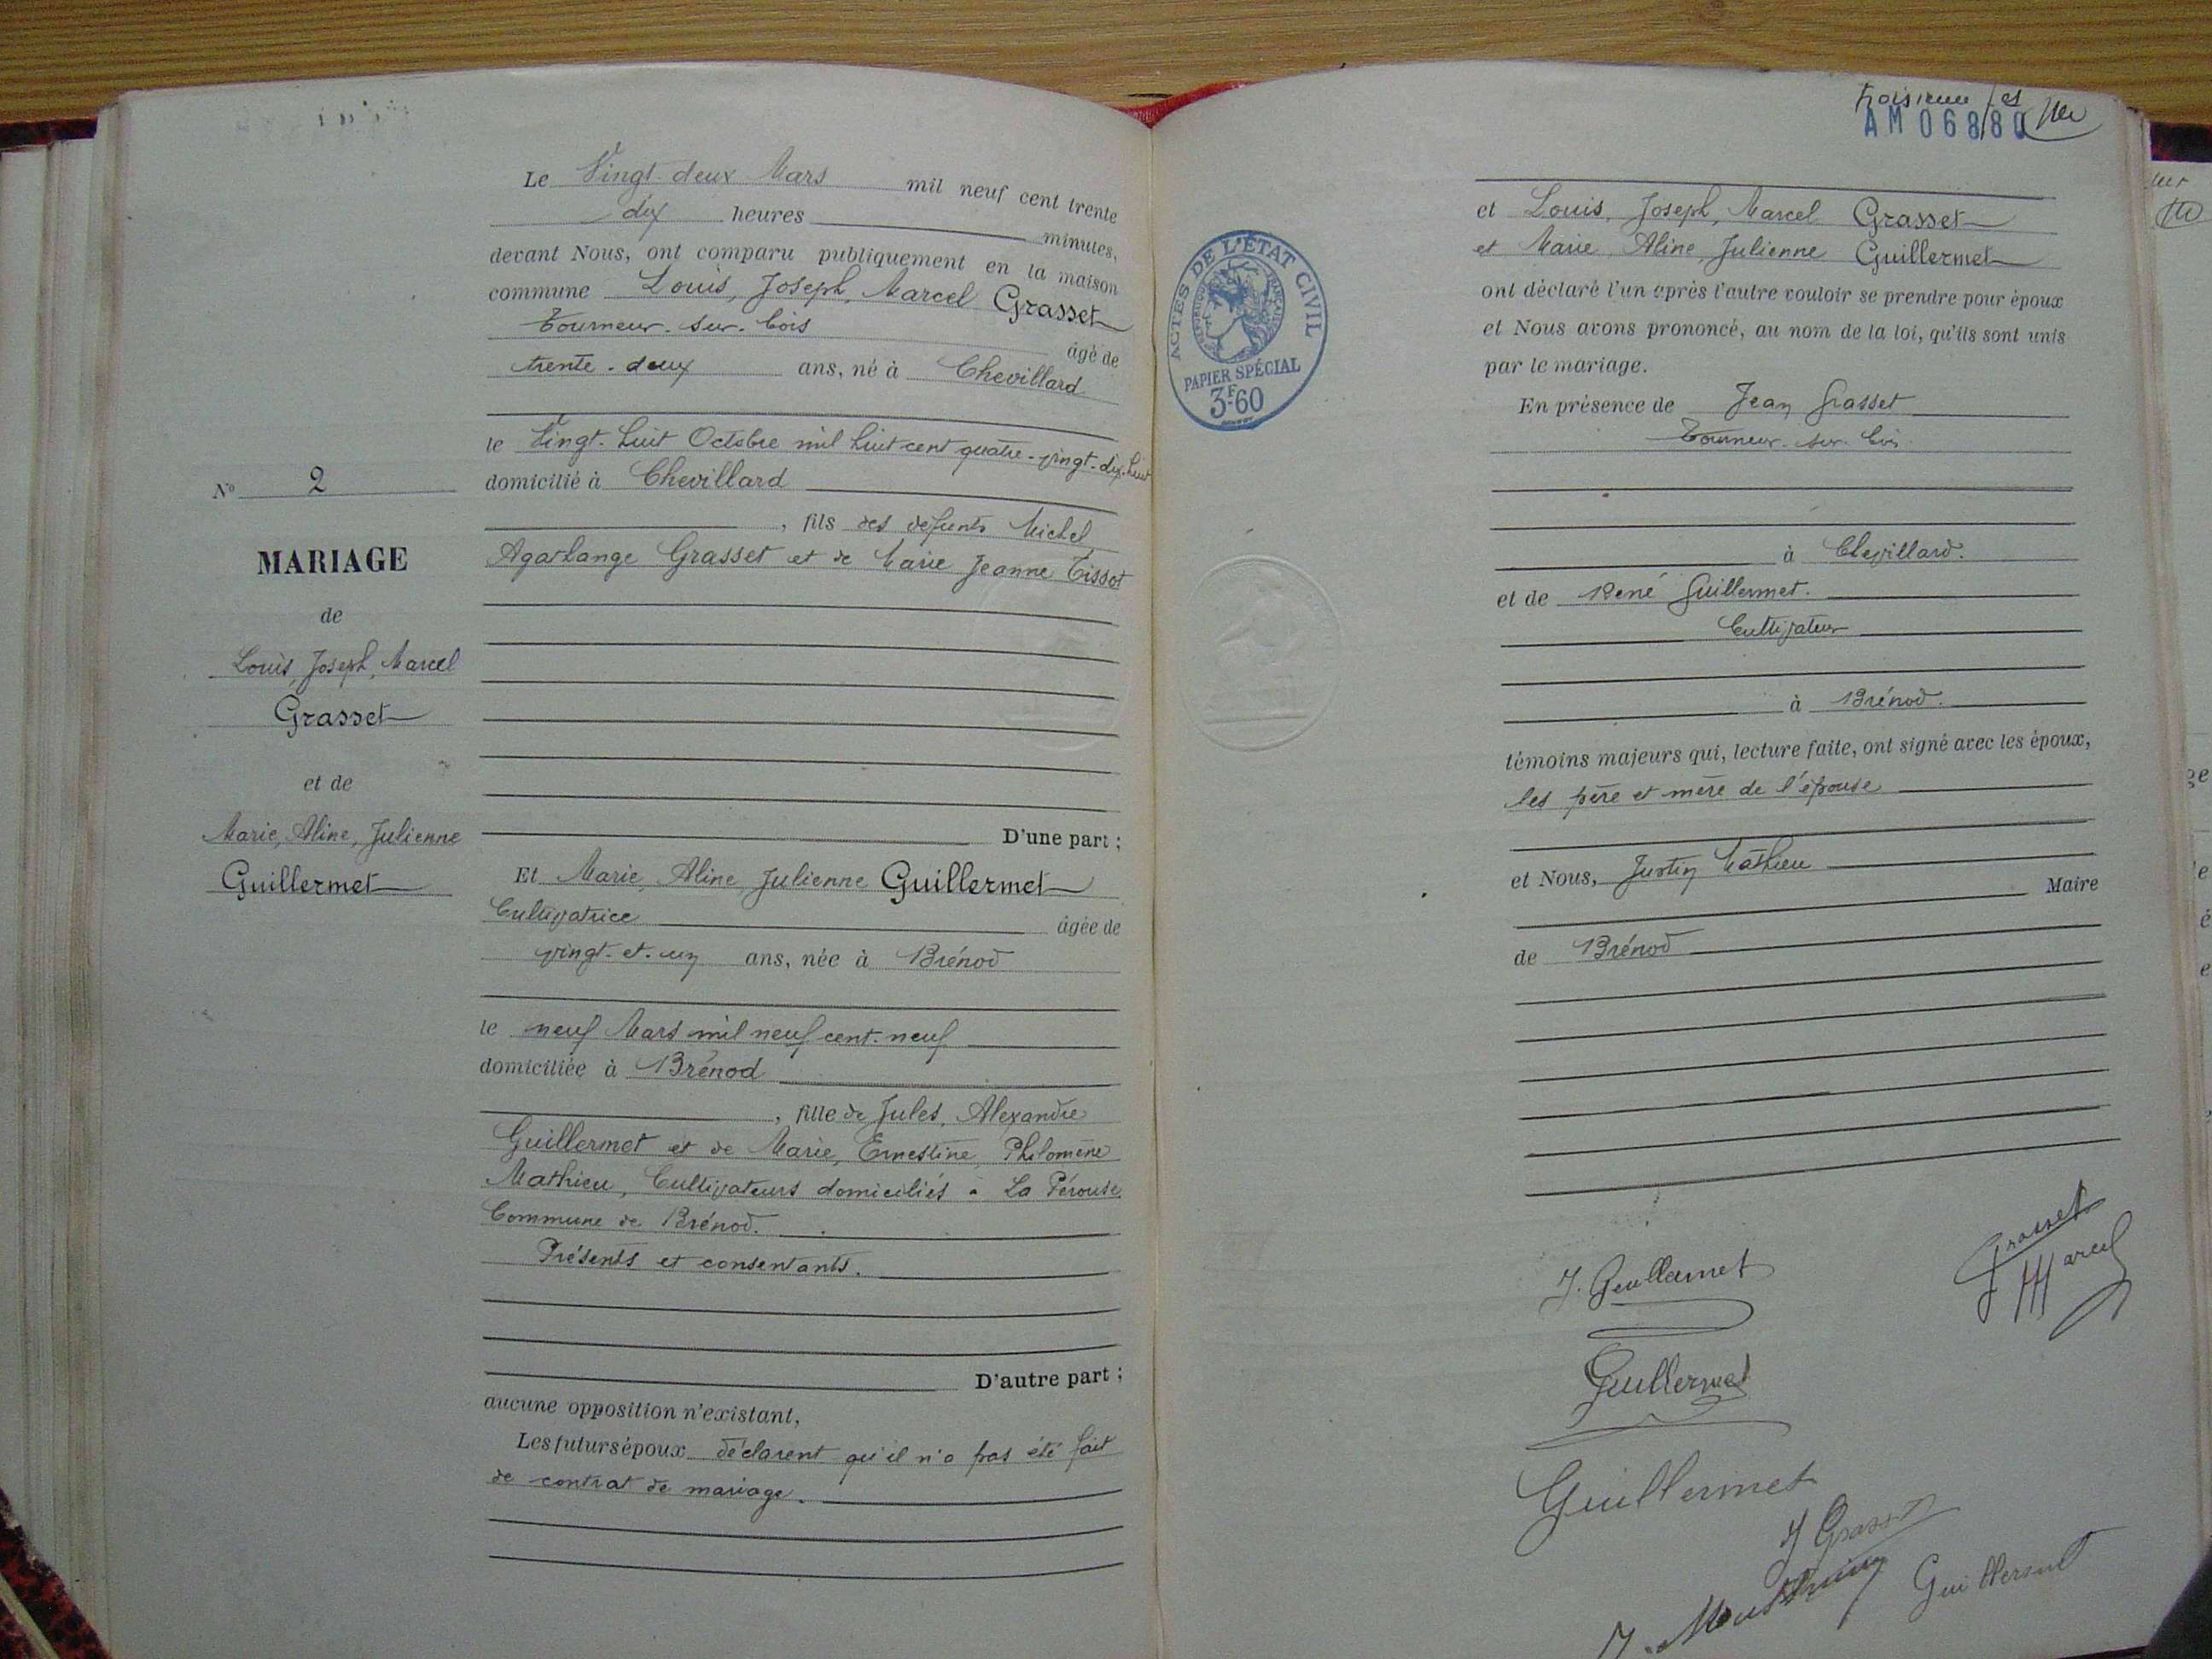 Le Vingt-deux Mars mil neuf cent trente
dix heures minutes,
devant Nous, ont comparu publiquement en la maison
commune Louis, Joseph, Marcel Grasset
Tourneur-sur-bois âgé de
trente-deux ans, né à Chevillard
le Vingt-huit Octobre mil huit cent quatre-vingt-dix-huit
domicilié à Chevillard
, fils des défunts Michel
Agathange Grasset et de Marie Jeanne Tissot
D'une part ;
Et Marie, Aline, Julienne Guillermet
Cultivatrice âgée de
vingt-et-un ans, née à Brénod
le neuf Mars mil neuf cent-neuf
domiciliée à Brénod
, fille de Jules, Alexandre
Guillermet et de Marie, Ernestine, Philomène
Mathieu, Cultivateurs domiciliés à La Pérouse
Commune de Brénod.
Présents et consentants.
D'autre part ;
aucune opposition n'existant,
Les futurs époux déclarent qu'il n'a pas été fait
de contrat de mariage.
N° 2
MARIAGE
de
Louis, Joseph, Marcel
Grasset
et de
Marie, Aline, Julienne
Guillermet
ACTES DE L'ÉTAT CIVIL
RÉPUBLIQUE FRANÇAISE
PAPIER SPÉCIAL
3F.60
troisième
AM 06880
et Louis, Joseph, Marcel Grasset
et Marie, Aline, Julienne Guillermet
ont déclaré l'un après l'autre vouloir se prendre pour époux
et Nous avons prononcé, au nom de la loi, qu'ils sont unis
par le mariage.
En présence de Jean Grasset
Tourneur-sur-bois
à Chevillard.
et de René Guillermet.
Cultivateur
à Brénod.
témoins majeurs qui, lecture faite, ont signé avec les époux,
les père et mère de l'épouse
et Nous, Justin Mathieu
Maire
de Brénod
J. Guillermet
Grasset
Marcel
Guillermet
Guillermet
J Grasset
Guillermet
J. Mathieu